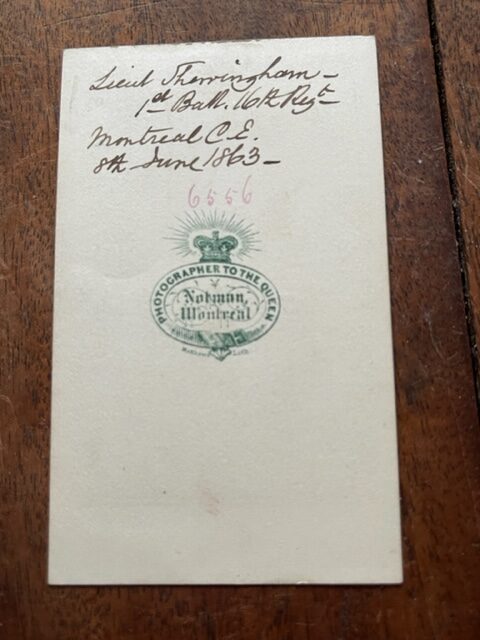 Lieut Therringham -
1st Batt. 16th Regt
Montreal C.E.
8th June 1863 -
6556
PHOTOGRAPHER TO THE QUEEN
Notman,
Montreal